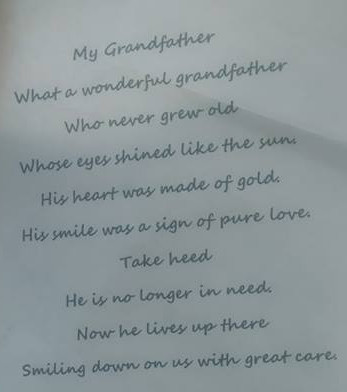 My Grandfather
What a wonderful grandfather
Who never grew old
Whose eyes shined like the sun.
His heart was made of gold.
His smile was a sign of pure love.
Take heed
He is no longer in need.
Now he lives up there
Smiling down on us with great care.